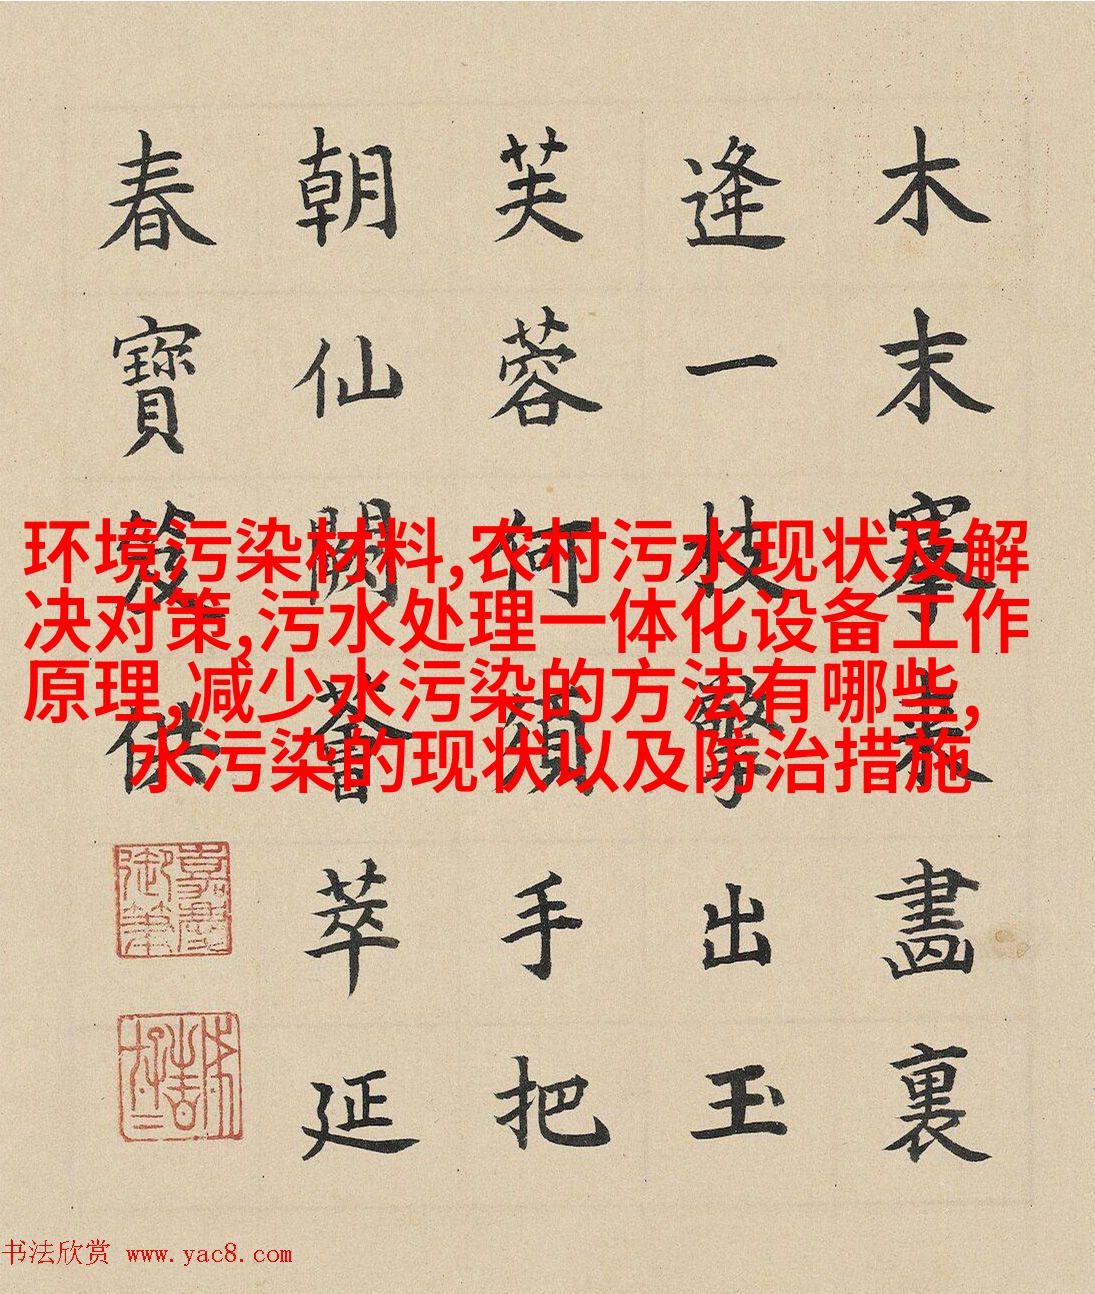 木末搴畫裏
逢一枝擎出玉
芙蓉何須手把
朝仙闕薈萃延
春寶籙供
嘉慶御筆
环境污染材料,农村污水现状及解
决对策,污水处理一体化设备工作
原理,减少水污染的方法有哪些,
水污染的现状以及防治措施
书法欣赏 www.yac8.com